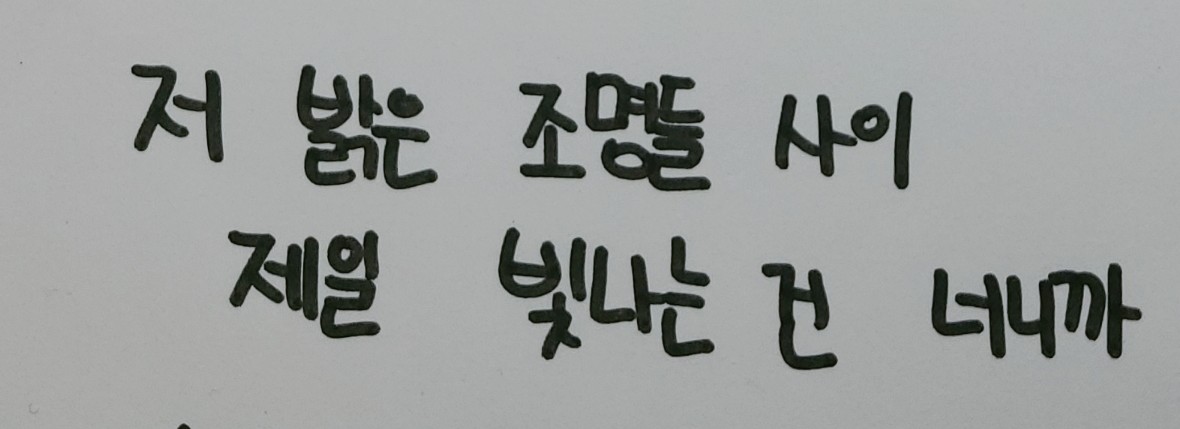 저 밝은 조명들 사이
제일 빛나는 건 너니까